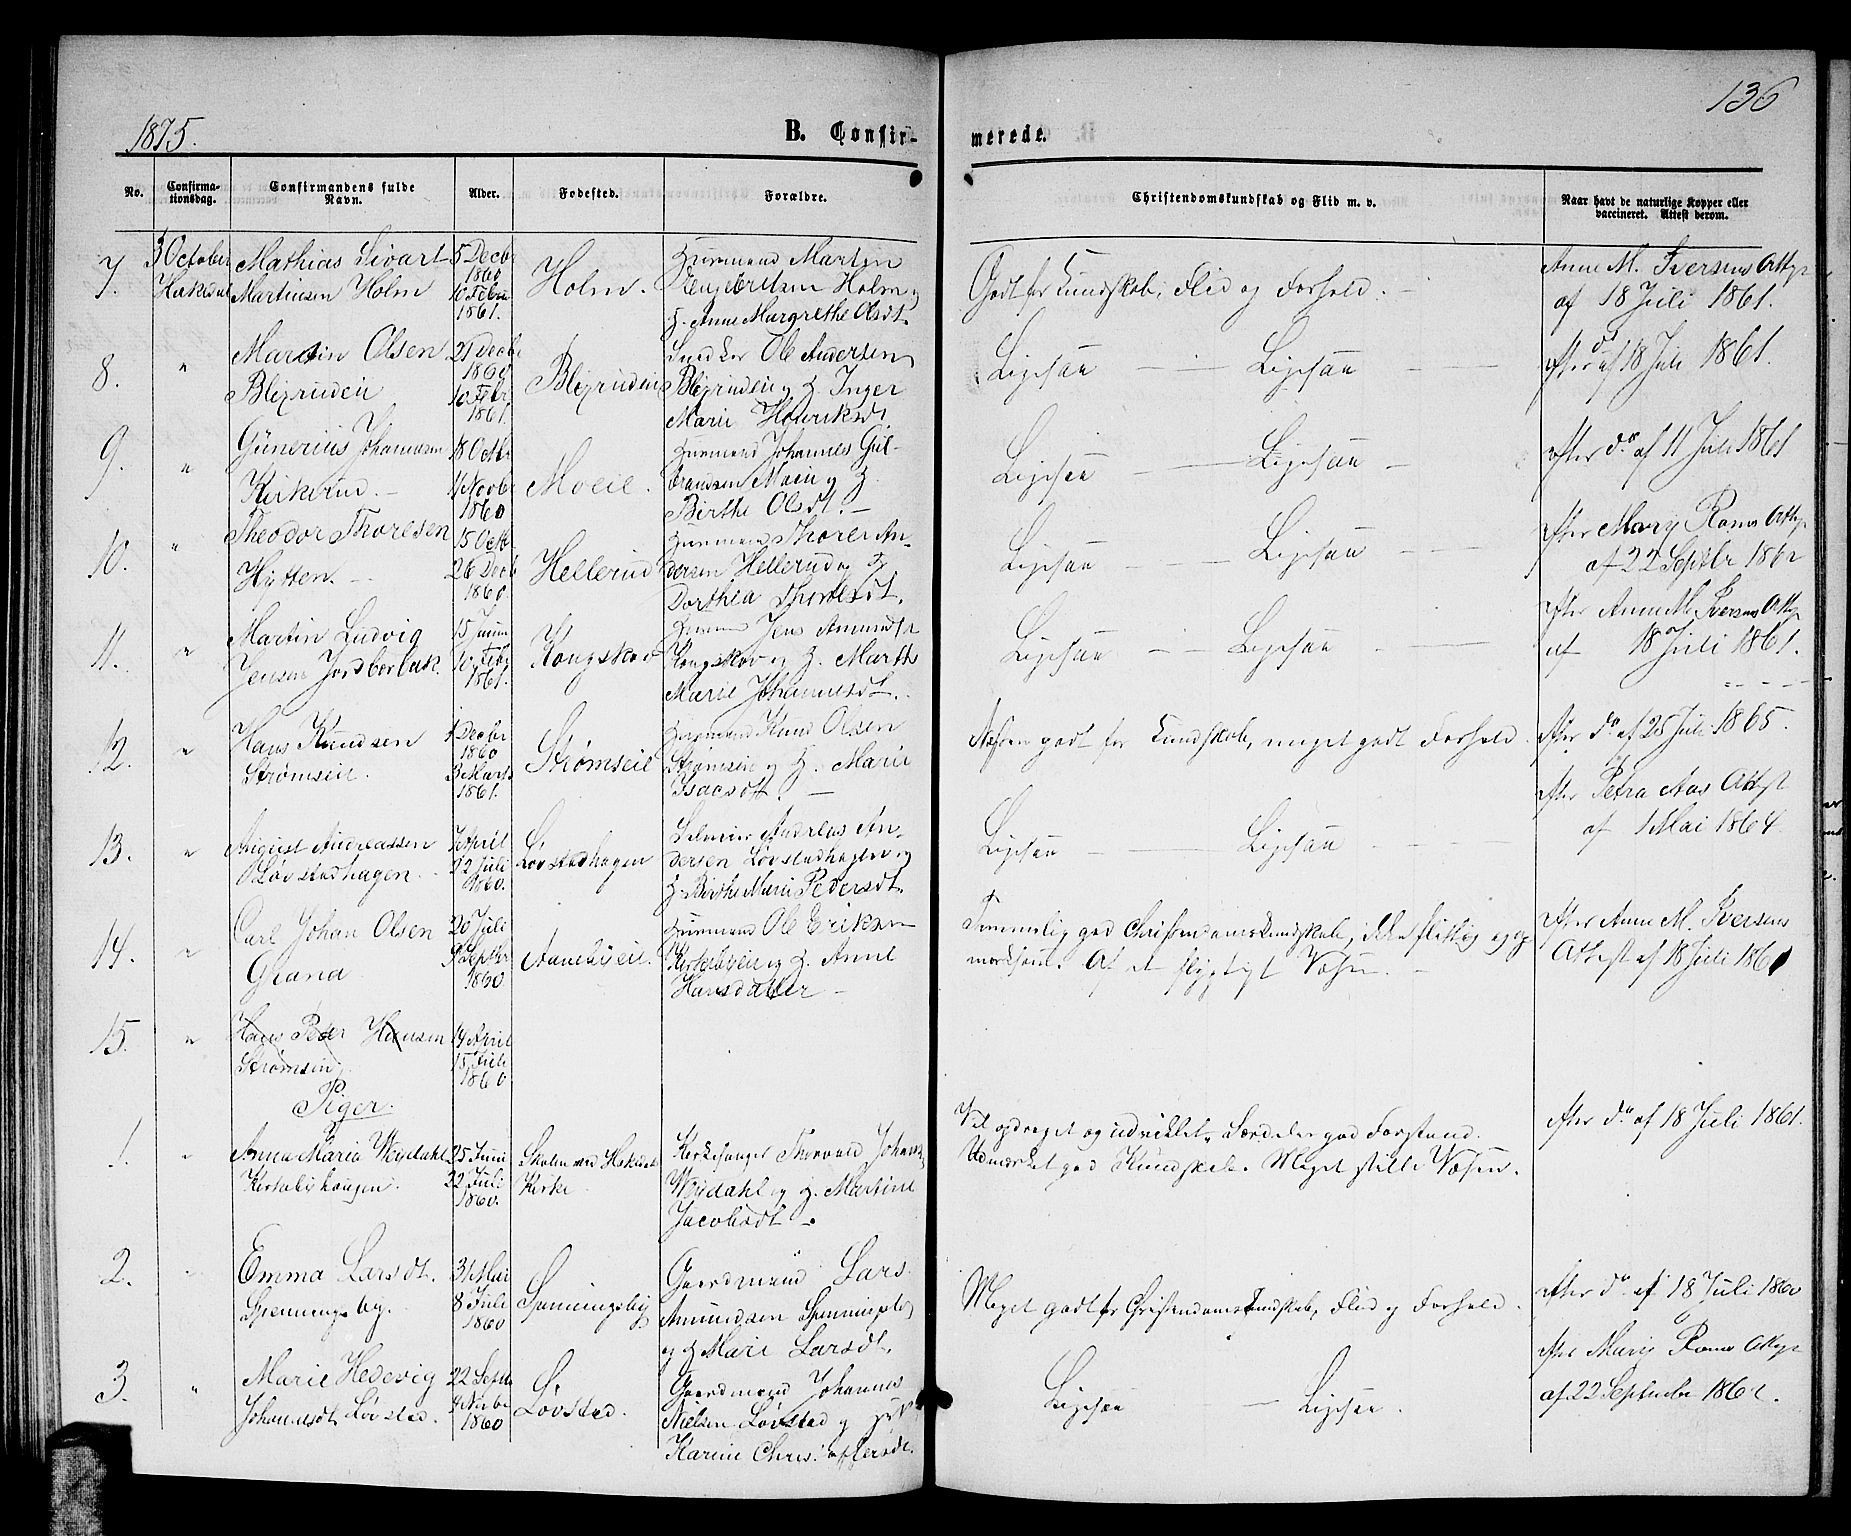 136
1875.
B. Confirmerede.
No.
Confirmationsdag.
Confirmandens fulde Navn.
Alder.
Fødested.
Forældre.
Christendomskundskab og Flid m. v.
Naar havt de naturlige Kopper eller vaccineret. Attest derom.
7.
3 October
Hakedal
Mathias Sivart
Martinsen Holm
5 Decbr
1860
10 Febr
1861.
Holm.
Huusmand Martin
Engebretsen Holm og
H. Anne Margrethe Olsdt.
Godt for Kundskab, Flid og Forhold.
Anne M. Iversens Attest
af 18 Juli 1861.
8.
"
Martin Olsen
21 Decbr
1860
10 Febr
1861.
Snedker Ole Andersen
og H. Inger
Marie Henriksdt.
Ligesaa — Ligesaa —
efter do af 18 Juli 1861.
9.
"
Günerius Johannesen
Kirkerud. -
18 Octbr
11 Novbr
1860
Moeie.
Huusmand Johannes Gulbrandsen
Moeie og H.
Birthe Olsdt. -
Ligesaa — Ligesaa -
efter do af 11 Juli 1861
10.
"
Theodor Thoresen
Hytten. -
15 Octbr
26 Decb
1860.
Hellerud
Huusmand Thorer Andersen
Hellerud og H
Dorthea Thoresdt.
Ligesaa — Ligesaa —
efter Mary Roms Attest
af 22 Septbr 1862
11.
"
Martin Ludvig
Jensen Jordbærbak.
10 Febr
1861.
Kongskov
Huusmand Jens Amundsen
Kongskov og H. Marthe
Marie Johannesdt.
Ligesaa — Ligesaa —
efter Anne M. Iversens Attest
af 18 Juli 1861.
12.
"
Hans Knudsen
Strømseie.
1 Decbr
1860
3 Marts
1861.
Strømseie
Huusmand Knud Olsen
Strømseie og H. Marie
Isacsdt. —
Næsten godt for Kundskab, meget godt Forhold.
efter do af 25 Juli 1865.
13.
"
August Andreassen
Løvstadhagen.
April
22 Juli
1860.
Løvstadhagen
Andreas Andersen
Løvstadhagen og
H. Birthe Marie Pedersdt.
Ligesaa — Ligesaa —
efter Petra Aas Attest
af 1 Mai 1864.
14.
"
Carl Johan Olsen
Grana
20 Juli
9 Septbr
1860
Annebyeie.
Huusmand Ole Eriksen
Kirkebyeie og H. Anne
Hansdatter —
Temmelig god Christendomskundskab, ikke flittig og opmærksom.
Af et flygtigt Væsen. -
efter Anne M. Iversens
Attest af 18 Juli 1861
15.
"
Hans Peder Hansen
Strømseie
14 April
15 Juli
1860
Piger.
1.
"
Anna Maria Weydahl
Kirkebyhaugen.
25 Juni
22 Juli
1860.
Skolen ved Hakedal
Kirke
Kirkesanger Thorvald Johansen
Weydahl og H. Martine
Jacobsdt -.
Vel opdraget og udviklet. Særdeles god Forstand.
Udmærket god Kundskab. Meget stille Væsen.
efter do af 18 Juli 1861.
2.
Emma Larsdt.
Spenningsby.
31 Mai
8 Juli
1860
Spenningsby
Gaardmand Lars
Amundsen Spenningsby
og H Mari Larsdt.
Meget godt for Christendomskundskab, Flid og Forhold.
efter do af 18 Juli 1860
3.
"
Marie Hedevig
Johannesdt. Løvstad.
22 Septbr
4 Novbr
1860
Løvstad.
Gaardmand Johannes
Nielsen Løvstad og
Karine
Ligesaa — Ligesaa.
efter Mary Roms Attest
af 22 September 1862.